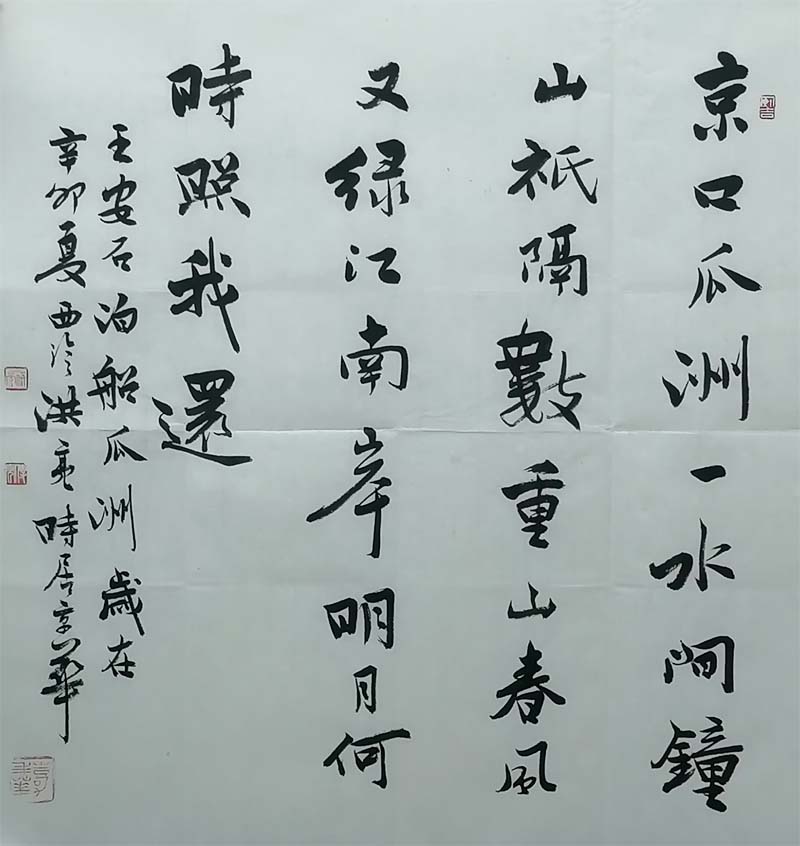 京口瓜洲一水间鐘
山祇隔數重山春風
又绿江南岸明月何
時照我還
王安石泊船瓜洲歲在
辛卯夏西泠洪亮時居京華